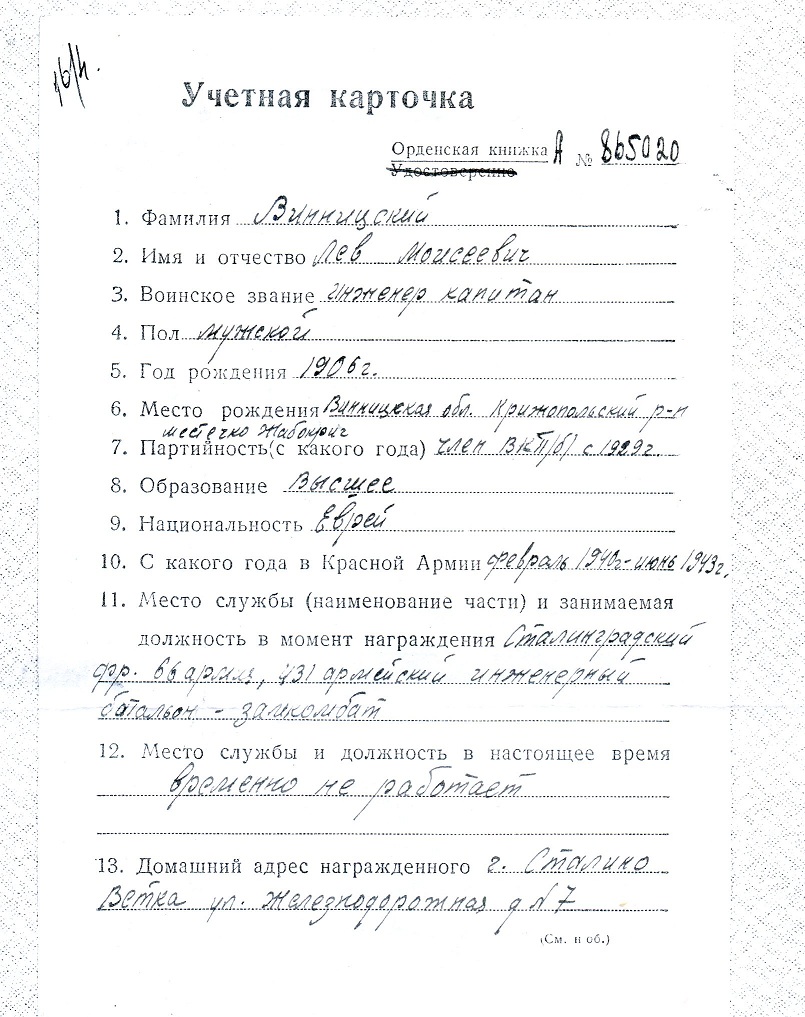 Учетная карточка
Орденская книжка А № 865020
Удостоверение
1. Фамилия Винницкий
2. Имя и отчество Лев Моисеевич
3. Воинское звание инженер капитан
4. Пол мужской
5. Год рождения 1906 г.
6. Место рождения Винницкая обл. Крижопольский р-н
местечко
7. Партийность (с какого года) член ВКП(б) с 1929 г.
8. Образование Высшее
9. Национальность Еврей
10. С какого года в Красной Армии февраль 1940г - июнь 1943г.
11. Место службы (наименование части) и занимаемая
должность в момент награждения Сталинградский
фр. 66 армия, 431 армейский инженерный
батальон - замкомбат
12. Место службы и должность в настоящее время
временно не работает
13. Домашний адрес награжденного г. Сталино
Ветка ул. Железнодорожная д N 7
(См. н об.)